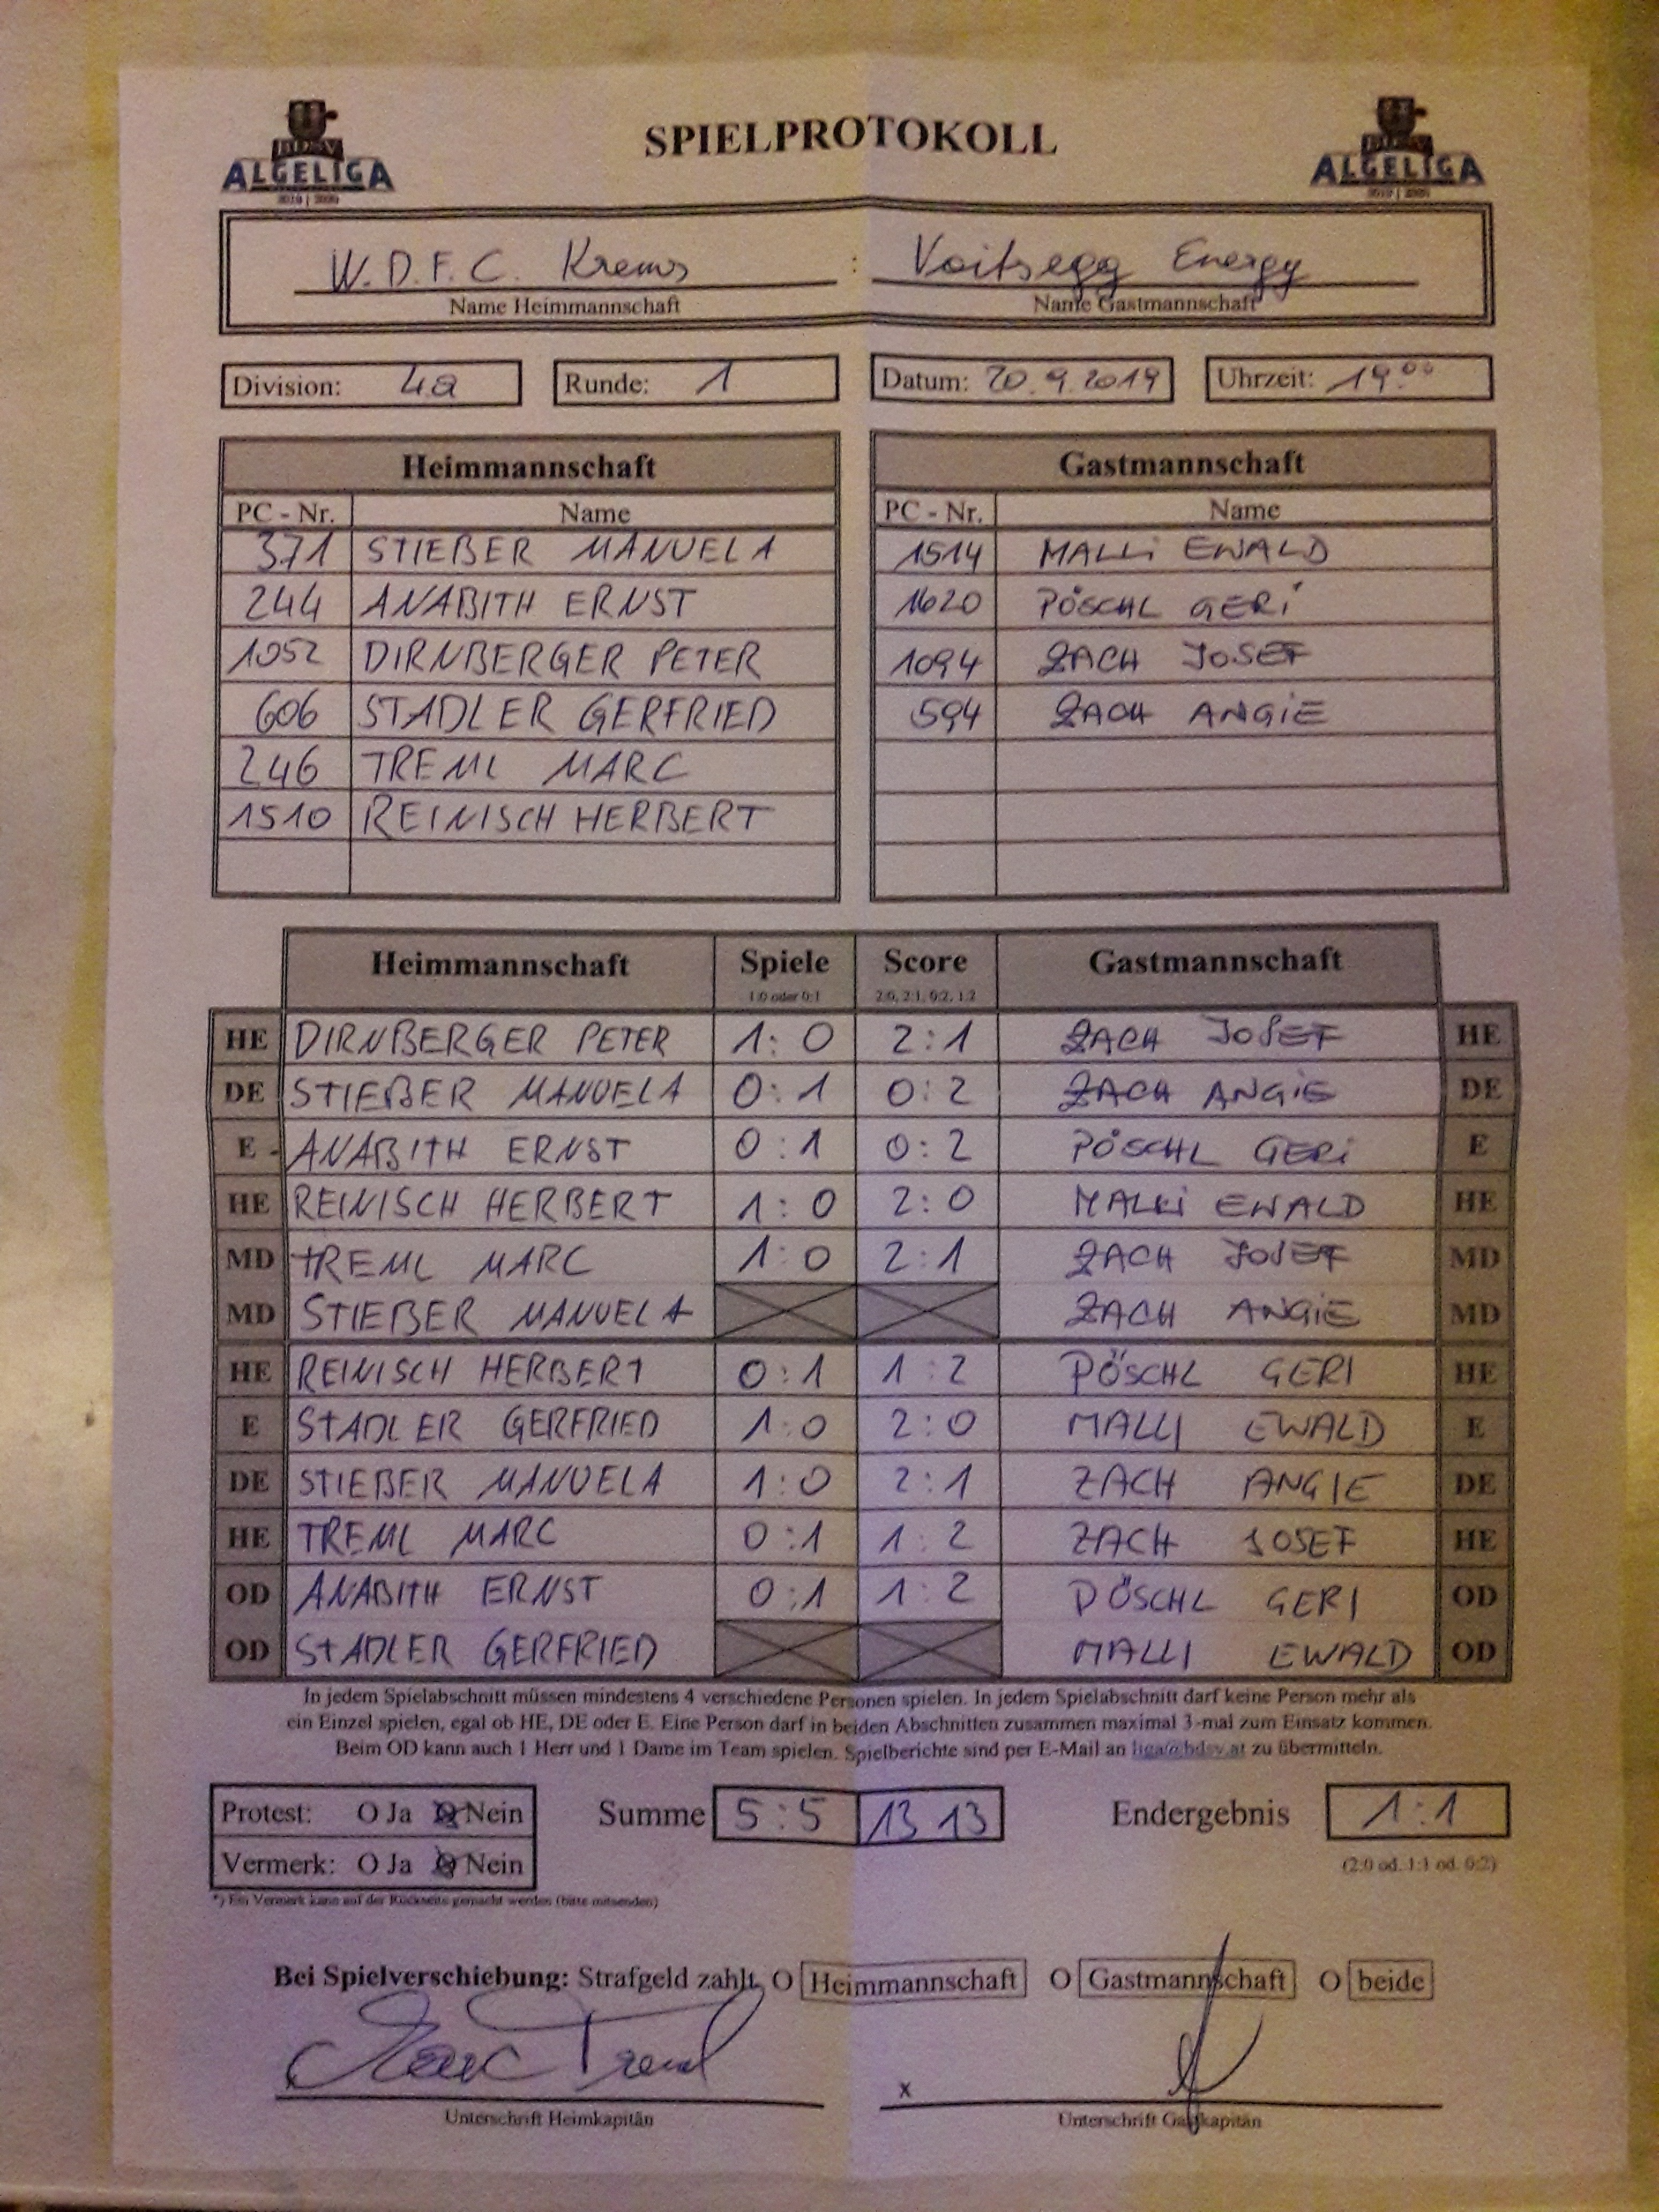 SPIELPROTOKOLL
BDSV
ALGELIGA
2019 | 2020
BDSV
ALGELIGA
2019 | 2020
W.D.F.C. Krems : Voitsegg Energy
Name Heimmannschaft Name Gastmannschaft
Division: 4a Runde: 1 Datum: 20.9.2019 Uhrzeit: 19.00
Heimmannschaft Gastmannschaft
PC - Nr. Name PC - Nr. Name
371 STIEßER MANUELA 1514 MALLI EWALD
244 ANABITH ERNST 1620 PÖSCHL GERI
1052 DIRNBERGER PETER 1094 ZACH JOSEF
606 STADLER GERFRIED 594 ZACH ANGIE
246 TREML MARC
1510 REINISCH HERBERT
Heimmannschaft Spiele Score Gastmannschaft
1:0 oder 0:1 2:0, 2:1, 0:2, 1:2
HE DIRNBERGER PETER 1:0 2:1 ZACH JOSEF HE
DE STIEßER MANUELA 0:1 0:2 ZACH ANGIE DE
E - ANABITH ERNST 0:1 0:2 PÖSCHL GERI E
HE REINISCH HERBERT 1:0 2:0 MALLI EWALD HE
MD TREML MARC 1:0 2:1 ZACH JOSEF MD
MD STIEßER MANUELA ZACH ANGIE MD
HE REINISCH HERBERT 0:1 1:2 PÖSCHL GERI HE
E STADLER GERFRIED 1:0 2:0 MALLI EWALD E
DE STIEßER MANUELA 1:0 2:1 ZACH ANGIE DE
HE TREML MARC 0:1 1:2 ZACH JOSEF HE
OD ANABITH ERNST 0:1 1:2 PÖSCHL GERI OD
OD STADLER GERFRIED MALLI EWALD OD
In jedem Spielabschnitt müssen mindestens 4 verschiedene Personen spielen. In jedem Spielabschnitt darf keine Person mehr als
ein Einzel spielen, egal ob HE, DE oder E. Eine Person darf in beiden Abschnitten zusammen maximal 3-mal zum Einsatz kommen.
Beim OD kann auch 1 Herr und 1 Dame im Team spielen. Spielberichte sind per E-Mail an liga@bdsv.at zu übermitteln.
Protest: O Ja O Nein Summe 5:5 13 13 Endergebnis 1:1
Vermerk: O Ja O Nein (2:0 od. 1:1 od. 0:2)
*) Ein Vermerk kann auf der Rückseite gemacht werden (bitte mitsenden)
Bei Spielverschiebung: Strafgeld zahlt O Heimmannschaft O Gastmannschaft O beide
Marc Treml x
Unterschrift Heimkapitän Unterschrift Gastkapitän